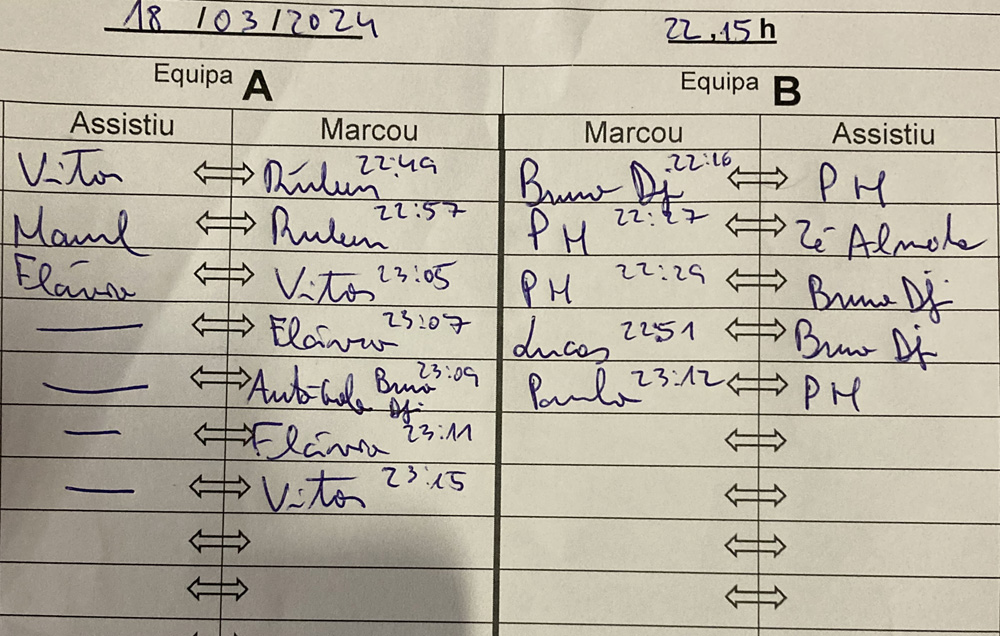 18 / 03 / 2024 22,15 h
Equipa A Equipa B
Assistiu Marcou Marcou Assistiu
Vitor Rúben 22:49 Bruno Dj 22:16 PM
Manel Ruben 22:57 PM 22:27 Zé Almada
Flávio Vitor 23:05 PM 22:29 Bruno Dj
Flávio 23:07 Lucas 22:51 Bruno Dj
Auto-Golo Bruno Dj 23:09 Paulo 23:12 PM
Flávio 23:11
Vitor 23:15